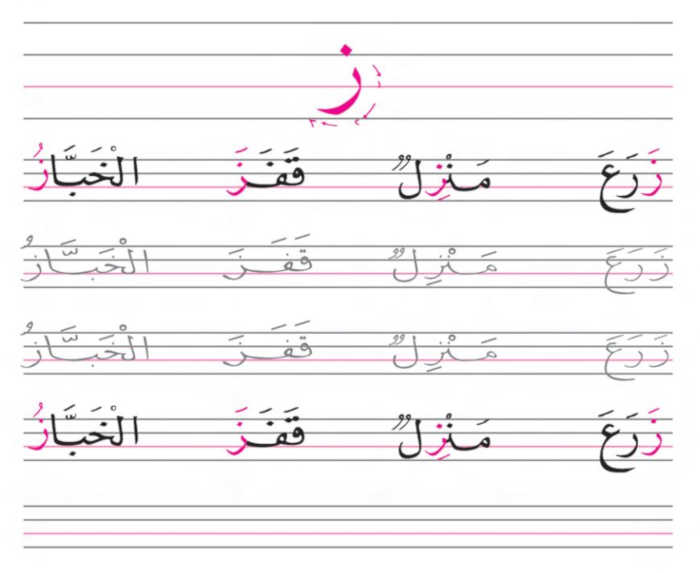 ز
زَرَعَ مَنْزِلٌ قَفَزَ الْخَبَّازُ
زَرَعَ مَنْزِلٌ قَفَزَ الْخَبَّازُ
زَرَعَ مَنْزِلٌ قَفَزَ الْخَبَّازُ
زَرَعَ مَنْزِلٌ قَفَزَ الْخَبَّازُ